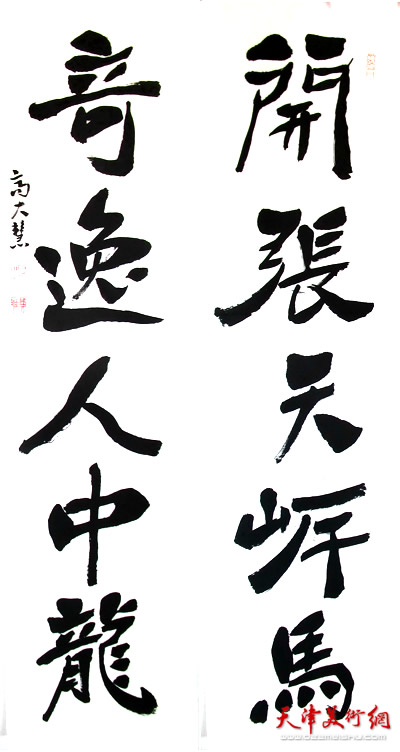 開張天岸馬
竒逸人中龍
高大慧
天津美術網